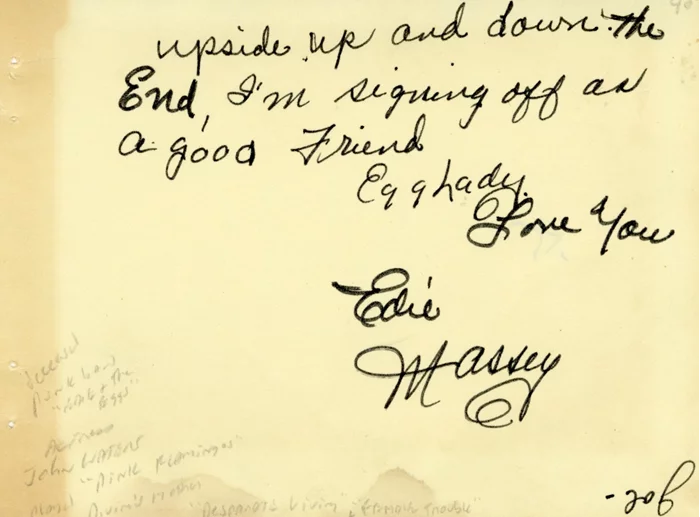 upside up and down. the
End, I'm signing off as
a good Friend
Egg Lady.
Love You
Edie
Massey
deceased
punk band
"Edie & the
Eggs"
Actress
John WATERS
"PINK FLAMINGOS"
played Divine's mother
"Desperate Living", "Female Trouble"